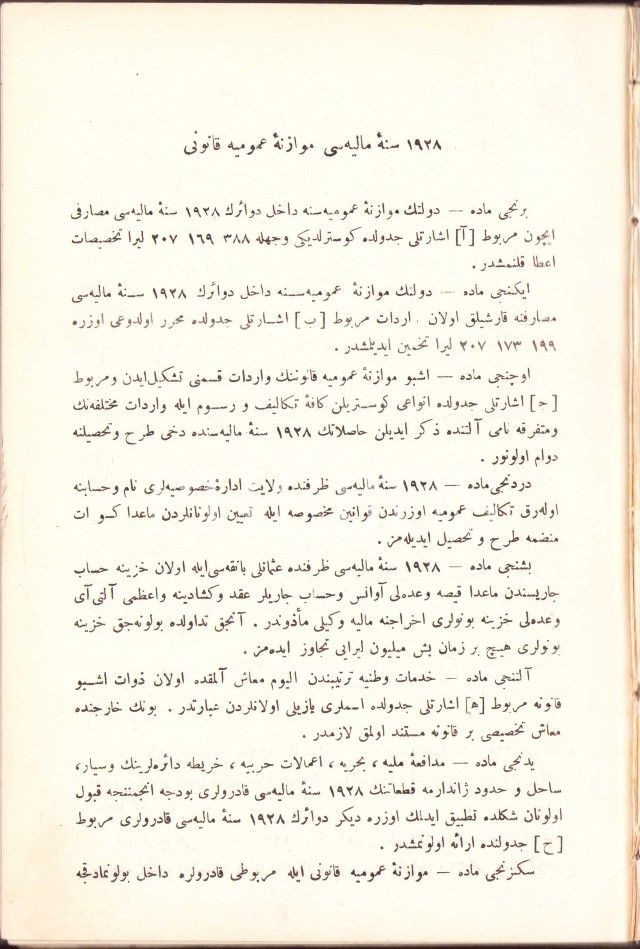 ١٩٢٨ سنۀ مالیه‌سی موازنۀ عمومیه قانونی
برنجی ماده — دولتك موازنۀ عمومیه‌سنه داخل دوائرك ١٩٢٨ سنۀ مالیه‌سی مصارفی
ایچون مربوط [آ] اشارتلی جدولده كوسترلدیكی وجهله ٣٨٨ ١٦٩ ٢٠٧ لیرا تخصیصات
اعطا قلنمشدر .
ایكنجی ماده — دولتك موازنۀ عمومیه‌ســنه داخل دوائرك ١٩٢٨ ســنۀ مالیه‌سی
مصارفنه قارشیلق اولان واردات مربوط [ب] اشــارتلی جدولده محرر اولدوغی اوزره
١٩٩ ١٧٣ ٢٠٧ لیرا تخمین ایدیلمشدر .
اوچنجی ماده — اشبو موازنۀ عمومیه قانوننك واردات قسمنی تشكیل‌ایدن ومربوط
[ج] اشارتلی جدولده انواعی كوســتریلن كافۀ تكالیف و رســوم ایله واردات مختلفه‌نك
ومتفرقه نامی آلتنده ذكر ایدیلن حاصلاتك ١٩٢٨ سنۀ مالیه‌سنده دخی طرح وتحصیلنه
دوام اولونور .
دردنجی‌ماده — ١٩٢٨ سنۀ مالیه‌سی ظرفنده ولایت ادارۀ‌خصوصیه‌لری نام وحسابنه
اوله‌رق تكالیف عمومیه اوزرندن قوانین مخصوصه ایله تعیین اولونانلردن ماعدا كسو ات
منضمه طرح و تحصیل ایدیله‌مز .
بشنجی ماده — ١٩٢٨ سنۀ مالیه‌سی ظرفنده عثمانلی بانقه‌سی‌ایله اولان خزینه حساب
جاریسندن ماعدا قیصه وعده‌لی آوانس وحساب جاریلر عقد وكشادینه واعظمی آلتی‌آی
وعده‌لی خزینه بونولری اخراجنه مالیه وكیلی مأذوندر . آنجق تداولده بولونه‌جق خزینه
بونولری هیچ بر زمان بش میلیون لیرایی تجاوز ایده‌مز .
آلتنجی ماده — خدمات وطنیه ترتیبندن الیوم معاش آلمقده اولان ذوات اشــبو
قانونه مربوط [ﻫ] اشارتلی جدولده اسملری یازیلی اولانلردن عبارتدر . بونك خارجنده
معاش تخصیصی بر قانونه مستند اولمق لازمدر .
یدنجی ماده — مدافعۀ ملیه ، بحریه ، اعمالات حربیه ، خریطه دائره‌لرینك وسیار،
ساحل و حدود ژاندارمه قطعاتنك ١٩٢٨ سنۀ مالیه‌سی قادرولری بودجه انجمننجه قبول
اولونان شكلده تطبیق ایدلمك اوزره دیكر دوائرك ١٩٢٨ سنۀ مالیه‌سی قادرولری مربوط
[ح] جدولنده ارائه اولونمشدر .
سكزنجی ماده — موازنۀ عمومیه قانونی ایله مربوطی قادرولره داخل بولونمادقجه